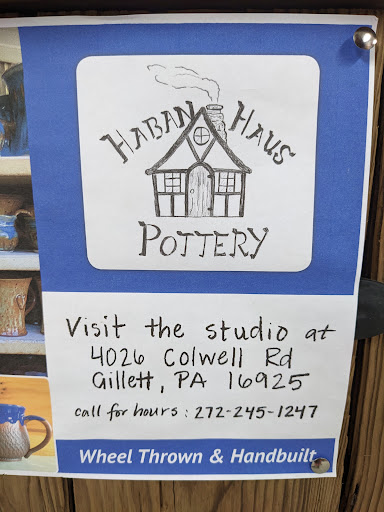 HABAN HAUS
POTTERY
Visit the studio at
4026 Colwell Rd
Gillett, PA 16925
call for hours: 272-245-1247
Wheel Thrown & Handbuilt